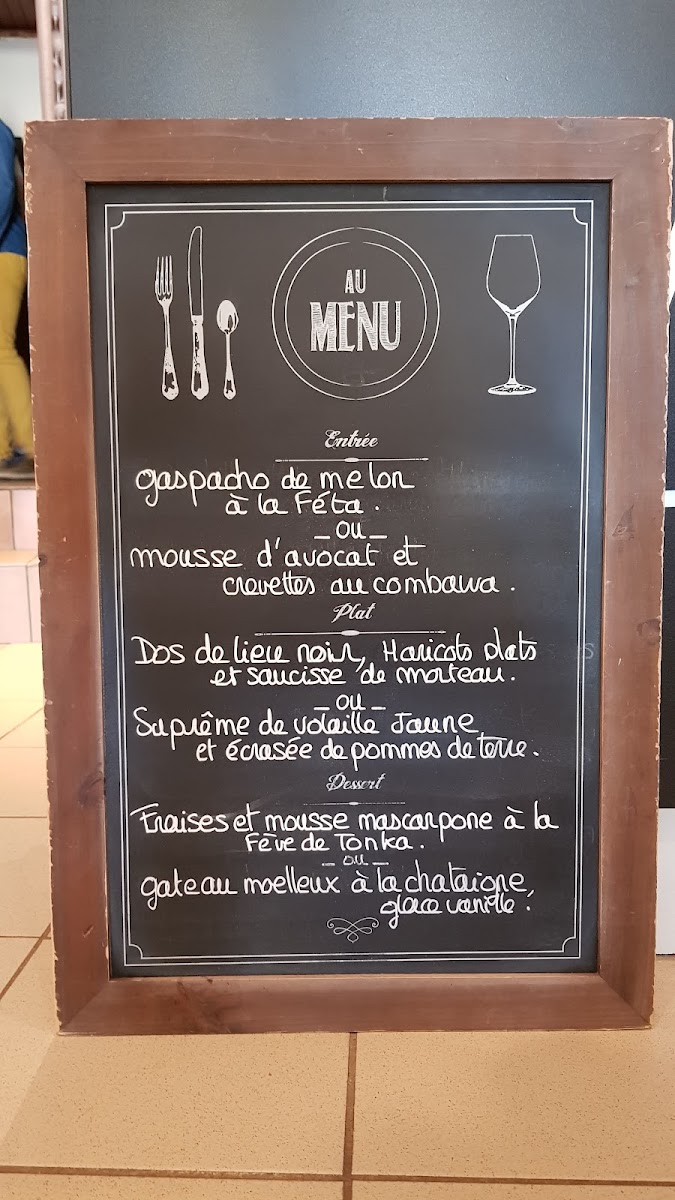 AU
MENU
Entrée
gaspacho de melon
à la Féta.
_ OU _
mousse d'avocat et
crevettes au combawa.
Plat
Dos de lieu noir, Haricots plats
et saucisse de morteau.
_ OU _
Suprême de volaille Jaune
et écrasée de pommes de terre.
Dessert
Fraises et mousse mascarpone à la
Fève de Tonka.
_ ou _
gateau moelleux à la chataigne,
glace vanille.